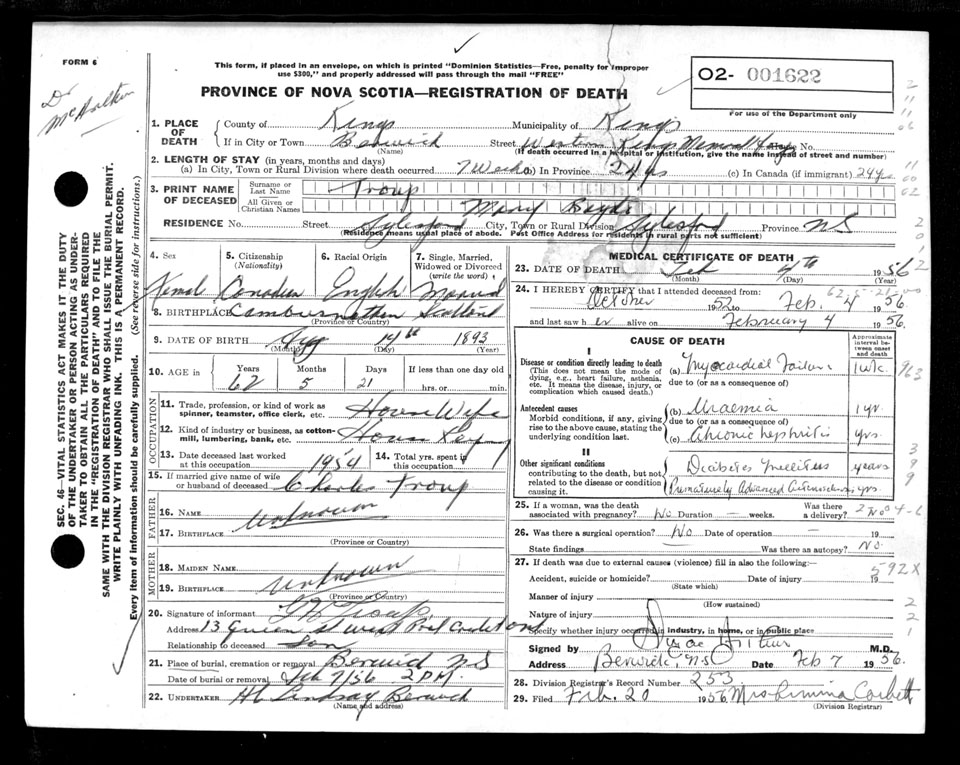 FORM 6
This form, if placed in an envelope, on which is printed "Dominion Statistics—Free, penalty for improper
use $300," and properly addressed will pass through the mail "FREE"
O2- 001622
For use of the Department only
PROVINCE OF NOVA SCOTIA—REGISTRATION OF DEATH
Dr
1. PLACE OF DEATH
County of Kings Municipality of Kings
If in City or Town Berwick Street Western Kings Memorial No.
(Name) (If death occurred in a hospital or institution, give the name instead of street and number)
2. LENGTH OF STAY (in years, months and days)
(a) In City, Town or Rural Division where death occurred 7 Weeks (b) In Province 24 yrs (c) In Canada (if immigrant) 24 yrs
3. PRINT NAME OF DECEASED
Surname or Last Name Troup
All Given or Christian Names Mary
RESIDENCE No. Street Aylesford City, Town or Rural Division Aylesford Province NS
(Residence means usual place of abode. Post Office Address for residents in rural parts not sufficient)
4. Sex 5. Citizenship (Nationality) 6. Racial Origin 7. Single, Married, Widowed or Divorced (write the word)
Female Canadian English Married
8. BIRTHPLACE Scotland
(Province or Country)
9. DATE OF BIRTH 14th 1893
(Month) (Day) (Year)
10. AGE in Years Months Days If less than one day old
62 5 21 hrs. or min.
OCCUPATION
11. Trade, profession, or kind of work as spinner, teamster, office clerk, etc. House Wife
12. Kind of industry or business, as cotton-mill, lumbering, bank, etc. House Keeping
13. Date deceased last worked at this occupation 1954 14. Total yrs. spent in this occupation
15. If married give name of wife or husband of deceased Charles Troup
FATHER
16. NAME Unknown
17. BIRTHPLACE
(Province or Country)
MOTHER
18. MAIDEN NAME
19. BIRTHPLACE Unknown
(Province or Country)
20. Signature of informant Troup
Address 13 Queen St West Ont
Relationship to deceased Son
21. Place of burial, cremation or removal Berwick NS
Date of burial or removal Feb 7/56 2 PM
22. UNDERTAKER Lindsay Berwick
(Name and address)
MEDICAL CERTIFICATE OF DEATH
23. DATE OF DEATH Feb 4th 1956
(Month) (Day)
24. I HEREBY CERTIFY that I attended deceased from:
October 1952 to Feb. 4 1956
and last saw her alive on February 4 1956.
CAUSE OF DEATH Approximate interval between onset and death
I
Disease or condition directly leading to death
(This does not mean the mode of dying, e.g., heart failure, asthenia, etc. It means the disease, injury, or complication which caused death.)
(a) Myocardial Failure 1 wk.
due to (or as a consequence of)
Antecedent causes
Morbid conditions, if any, giving rise to the above cause, stating the underlying condition last.
(b) Uraemia 1 yr
due to (or as a consequence of)
(c) Chronic nephritis yrs.
II
Other significant conditions
contributing to the death, but not related to the disease or condition causing it.
Diabetes Mellitus years
Prematurely Advanced Arteriosclerosis yrs.
25. If a woman, was the death associated with pregnancy? No Duration — weeks. Was there a delivery? No
26. Was there a surgical operation? No Date of operation — 19
State findings — Was there an autopsy? No.
27. If death was due to external causes (violence) fill in also the following:
592X
Accident, suicide or homicide? Date of injury 19
(State which)
Manner of injury
(How sustained)
Nature of injury
Specify whether injury occurred in industry, in home, or in public place
Signed by M.D.
Address Berwick, N.S. Date Feb 7 1956.
28. Division Registrar's Record Number 253
29. Filed Feb. 20 1956 Mrs Corbett
(Division Registrar)
SEC. 46—VITAL STATISTICS ACT MAKES IT THE DUTY
OF THE UNDERTAKER OR PERSON ACTING AS UNDER-
TAKER TO OBTAIN ALL THE PARTICULARS REQUIRED
IN THE "REGISTRATION OF DEATH" AND TO FILE THE
SAME WITH THE DIVISION REGISTRAR WHO SHALL ISSUE THE BURIAL PERMIT.
WRITE PLAINLY WITH UNFADING INK. THIS IS A PERMANENT RECORD.
Every item of information should be carefully supplied. (See reverse side for instructions.)